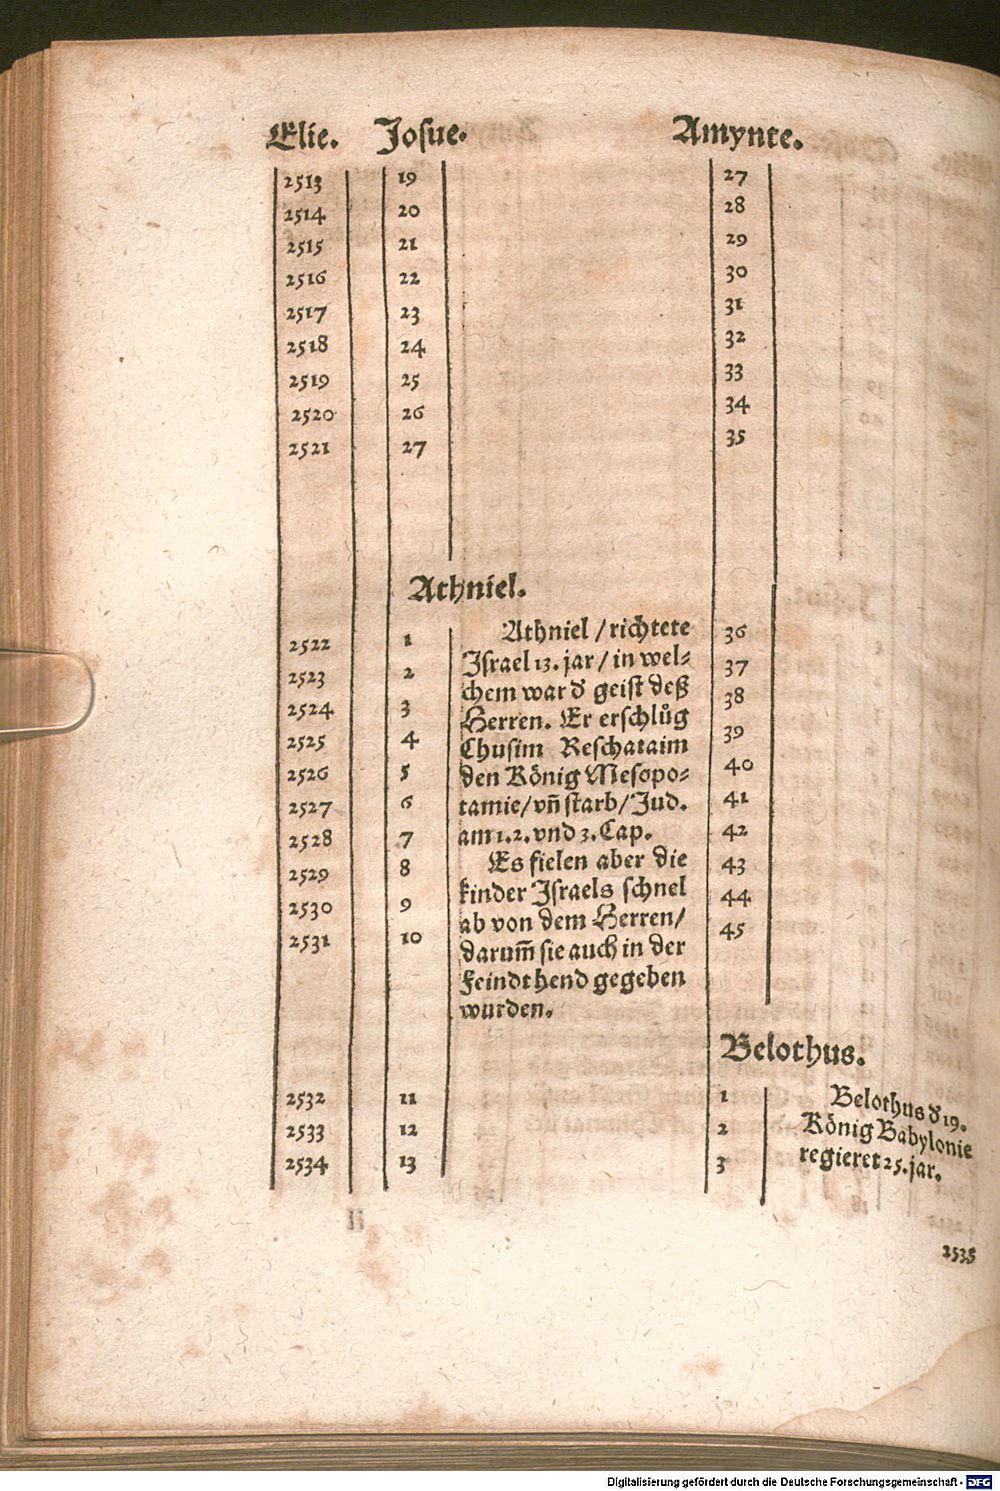 Elie. Josue. Amynte.
2513 19 27
2514 20 28
2515 21 29
2516 22 30
2517 23 31
2518 24 32
2519 25 33
2520 26 34
2521 27 35
Athniel.
Athniel / richtete
2522 1 36
Jsrael 13. jar / in wel⸗
2523 2 37
chem war d' geist deß
2524 3 38
Herren. Er erschlůg
2525 4 39
Chusim Reschataim
2526 5 40
den König Mesopo⸗
2527 6 41
tamie / vn̄ starb / Jud.
2528 7 42
am 1. 2. vnd 3. Cap.
2529 8 43
Es fielen aber die
2530 9 44
kinder Jsraels schnel
2531 10 45
ab von dem Herren /
darum̄ sie auch in der
Feindt hend gegeben
wurden.
Belothus.
2532 11 1
2533 12 2
2534 13 3
Belothus d' 19.
König Babylonie
regieret 25. jar.
2535
Digitalisierung gefördert durch die Deutsche Forschungsgemeinschaft - DFG